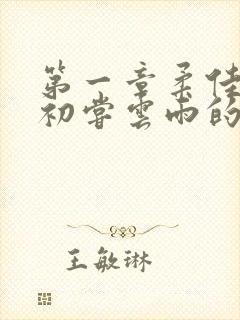 第一章柔佳
初尝云雨的
王敏琳